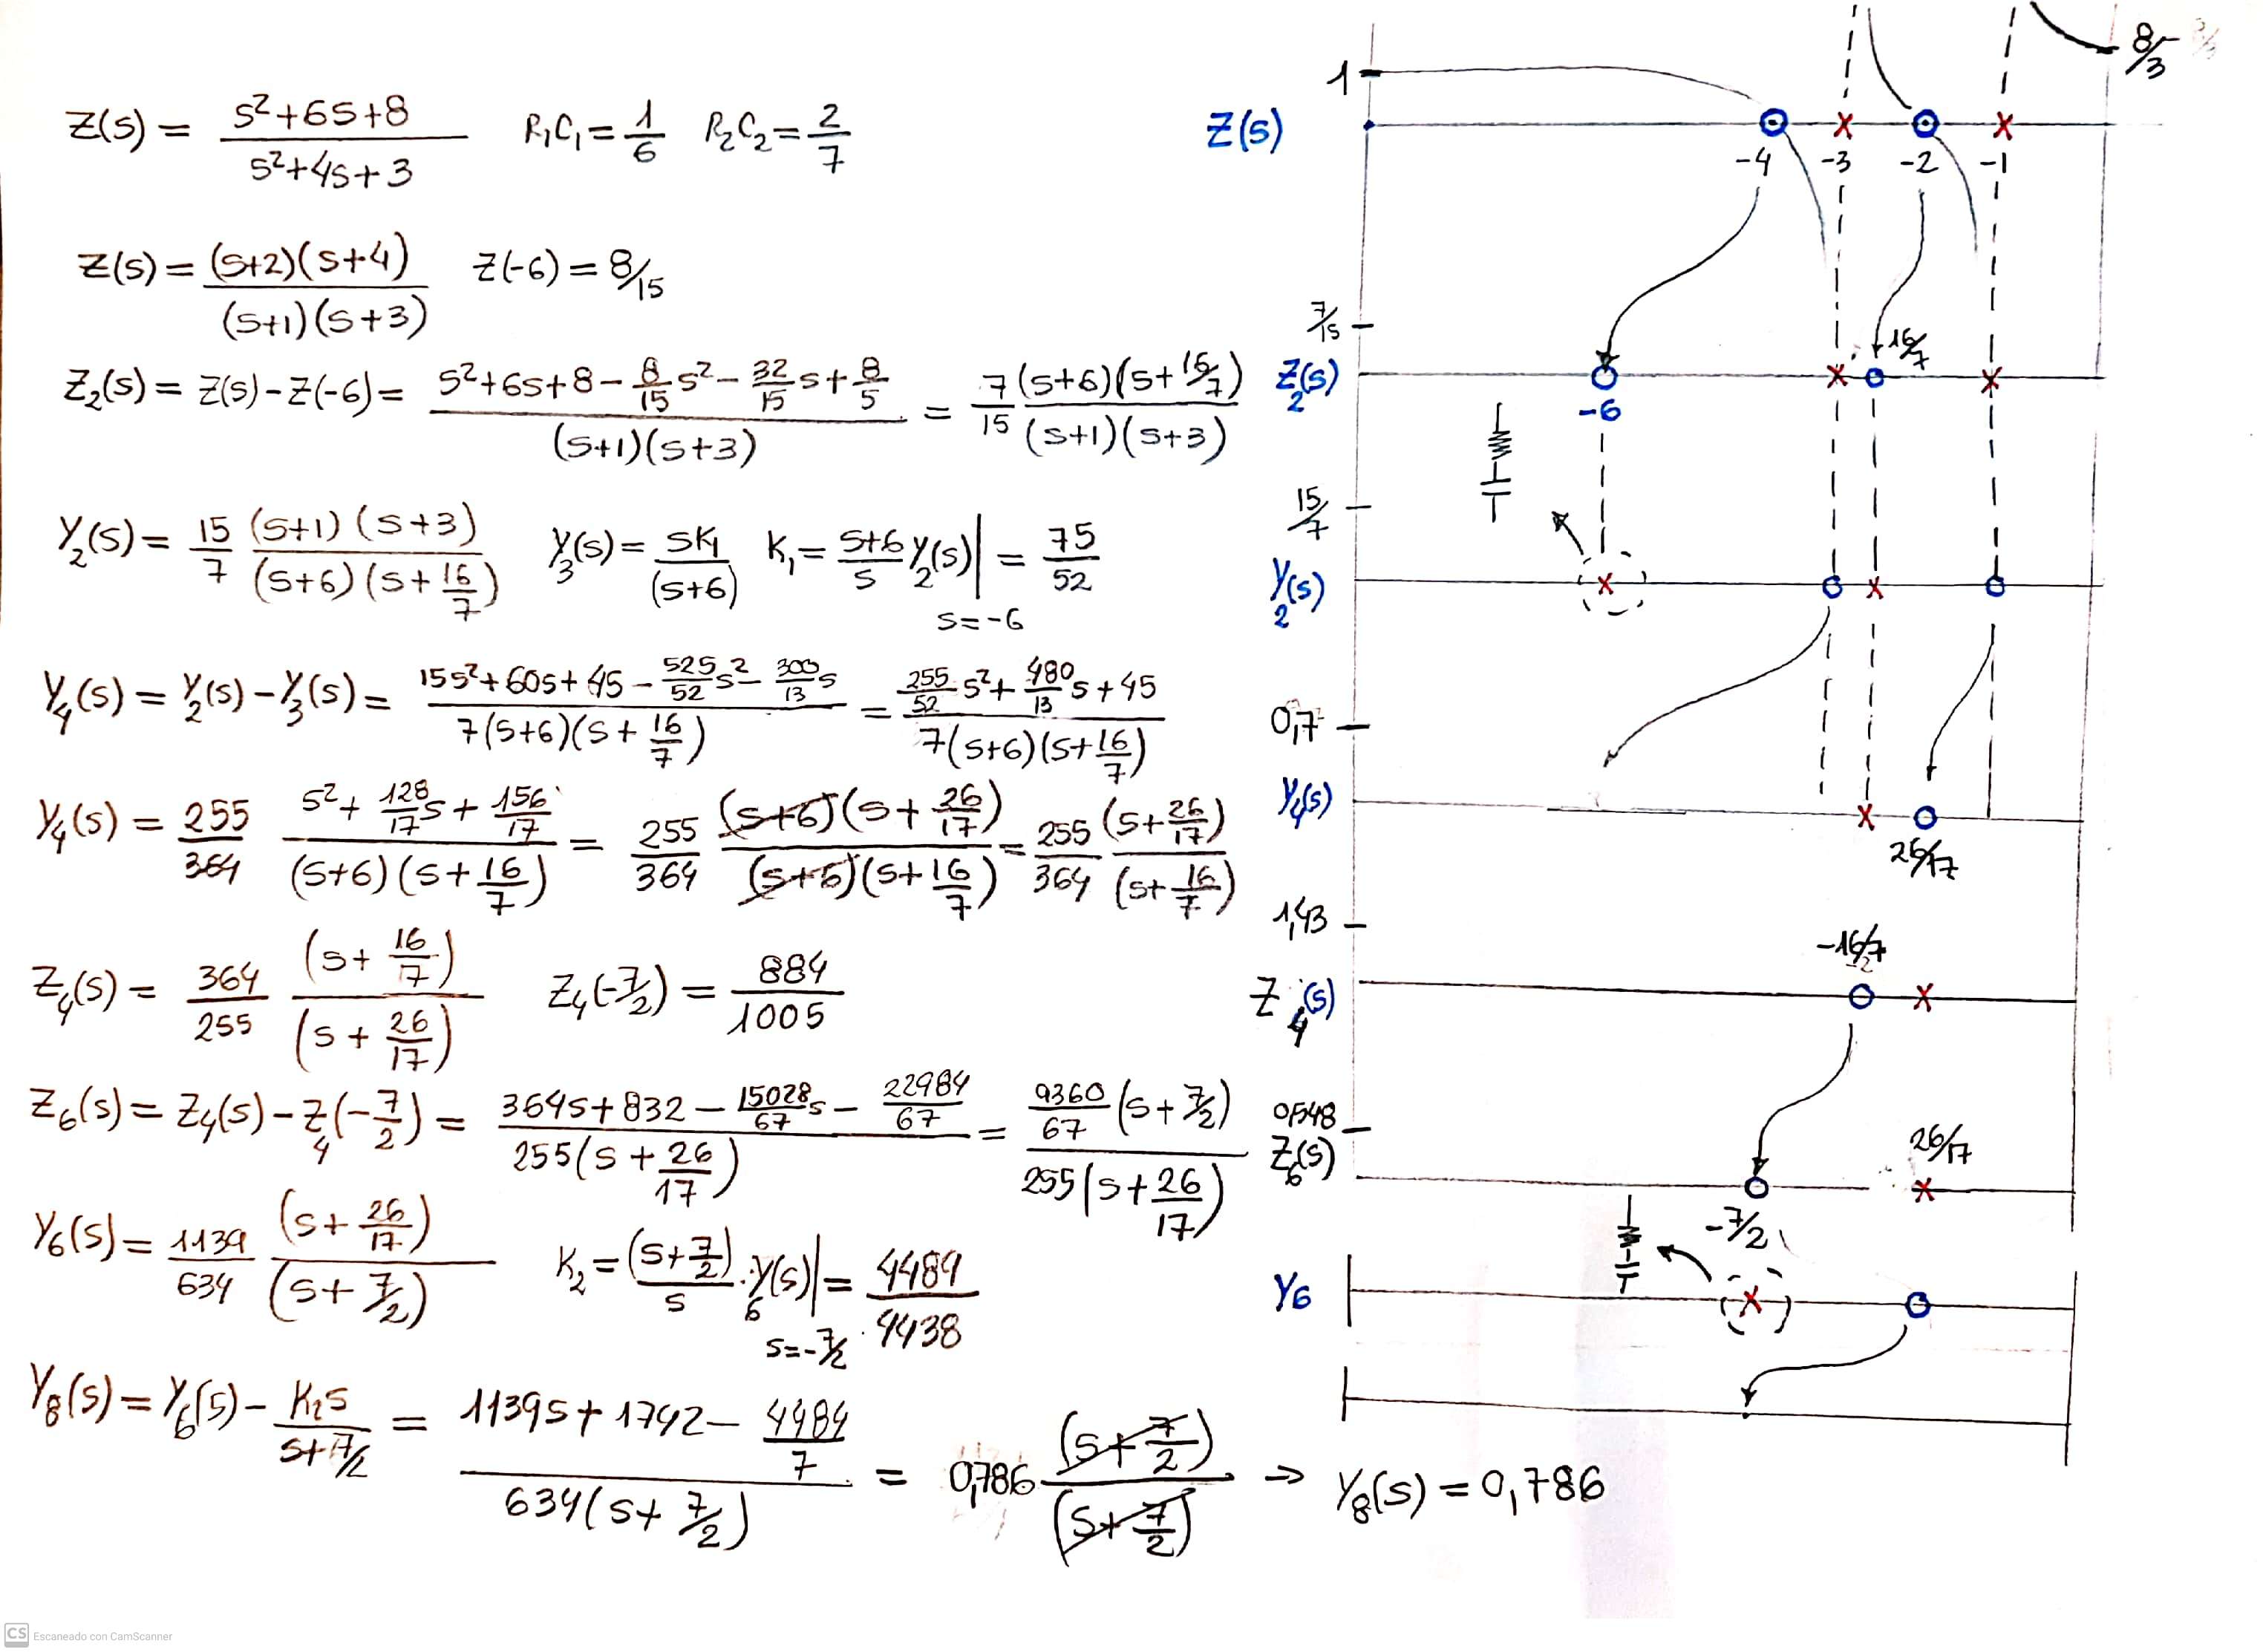 Z(s) = (s²+6s+8)/(s²+4s+3)   R₁C₁ = 1/6   R₂C₂ = 2/7
Z(s) = (s+2)(s+4)/((s+1)(s+3))   Z(-6) = 8/15
Z₂(s) = Z(s) - Z(-6) = (s²+6s+8 - 8/15 s² - 32/15 s + 8/5)/((s+1)(s+3)) = 7/15 (s+6)(s+16/7)/((s+1)(s+3))
Y₂(s) = 15/7 (s+1)(s+3)/((s+6)(s+16/7))   Y₃(s) = sK₁/(s+6)   K₁ = (s+6)/s Y₂(s)| s=-6 = 75/52
Y₄(s) = Y₂(s) - Y₃(s) = (15s²+60s+45 - 525/52 s² - 300/13 s)/(7(s+6)(s+16/7)) = (255/52 s² + 480/13 s + 45)/(7(s+6)(s+16/7))
Y₄(s) = 255/364 (s² + 128/17 s + 156/17)/((s+6)(s+16/7)) = 255/364 (s+6)(s+26/17)/((s+6)(s+16/7)) = 255/364 (s+26/17)/(s+16/7)
Z₄(s) = 364/255 (s+16/7)/(s+26/17)   Z₄(-7/2) = 884/1005
Z₆(s) = Z₄(s) - Z₄(-7/2) = (364s+832 - 15028/67 s - 22984/67)/(255(s+26/17)) = 9360/67 (s+7/2)/(255(s+26/17))
Y₆(s) = 1139/634 (s+26/17)/(s+7/2)   K₂ = (s+7/2)/s · Y₆(s)| s=-7/2 = 4489/4438
Y₈(s) = Y₆(s) - K₂s/(s+7/2) = (1139s+1742 - 4484/7)/(634(s+7/2)) = 0,786 (s+7/2)/(s+7/2) → Y₈(s) = 0,786
8/3
1
Z(s)
-4 -3 -2 -1
7/15
16/7
Z₂(s)
-6
15/7
Y₂(s)
0,7
Y₄(s)
26/17
1,43
-16/7
Z₄(s)
0,548
26/17
Z₆(s)
-7/2
Y6
CS Escaneado con CamScanner